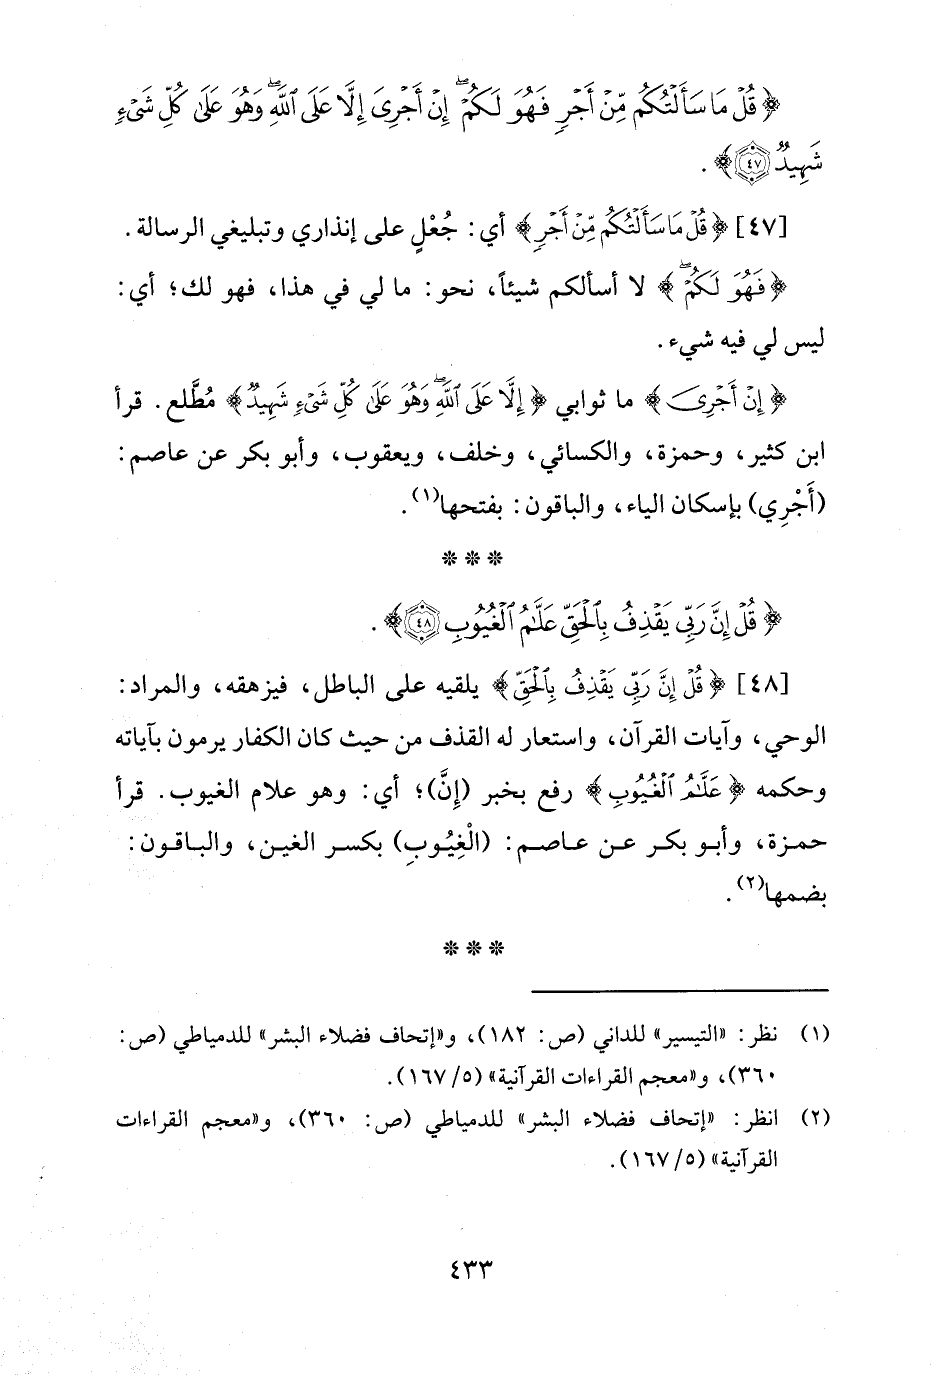 ﴿قُلْ مَا سَأَلْتُكُم مِّنْ أَجْرٍ فَهُوَ لَكُمْ ۖ إِنْ أَجْرِىَ إِلَّا عَلَى ٱللَّهِ ۖ وَهُوَ عَلَىٰ كُلِّ شَىْءٍ
شَهِيدٌ ﴿٤٧﴾﴾ .
[٤٧] ﴿قُلْ مَا سَأَلْتُكُم مِّنْ أَجْرٍ﴾ أي: جُعْلٍ على إنذاري وتبليغي الرسالة .
﴿فَهُوَ لَكُمْ ۖ﴾ لا أسألكم شيئاً، نحو: ما لي في هذا، فهو لك؛ أي:
ليس لي فيه شيء .
﴿إِنْ أَجْرِىَ﴾ ما ثوابي ﴿إِلَّا عَلَى ٱللَّهِ ۖ وَهُوَ عَلَىٰ كُلِّ شَىْءٍ شَهِيدٌ﴾ مُطَّلع . قرأ
ابن كثير، وحمزة، والكسائي، وخلف، ويعقوب، وأبو بكر عن عاصم:
(أَجْرِي) بإسكان الياء، والباقون: بفتحها(١) .
* * *
﴿قُلْ إِنَّ رَبِّى يَقْذِفُ بِٱلْحَقِّ عَلَّـٰمُ ٱلْغُيُوبِ ﴿٤٨﴾﴾ .
[٤٨] ﴿قُلْ إِنَّ رَبِّى يَقْذِفُ بِٱلْحَقِّ﴾ يلقيه على الباطل، فيزهقه، والمراد:
الوحي، وآيات القرآن، واستعار له القذف من حيث كان الكفار يرمون بآياته
وحكمه ﴿عَلَّـٰمُ ٱلْغُيُوبِ﴾ رفع بخبر (إِنَّ)؛ أي: وهو علام الغيوب . قرأ
حمزة، وأبو بكر عن عاصم: (الْغِيُوبِ) بكسر الغين، والباقون:
بضمها(٢) .
* * *
(١) نظر: «التيسير» للداني (ص: ١٨٢)، و«إتحاف فضلاء البشر» للدمياطي (ص:
٣٦٠)، و«معجم القراءات القرآنية» (٥/ ١٦٧).
(٢) انظر: «إتحاف فضلاء البشر» للدمياطي (ص: ٣٦٠)، و«معجم القراءات
القرآنية» (٥/ ١٦٧).
٤٣٣